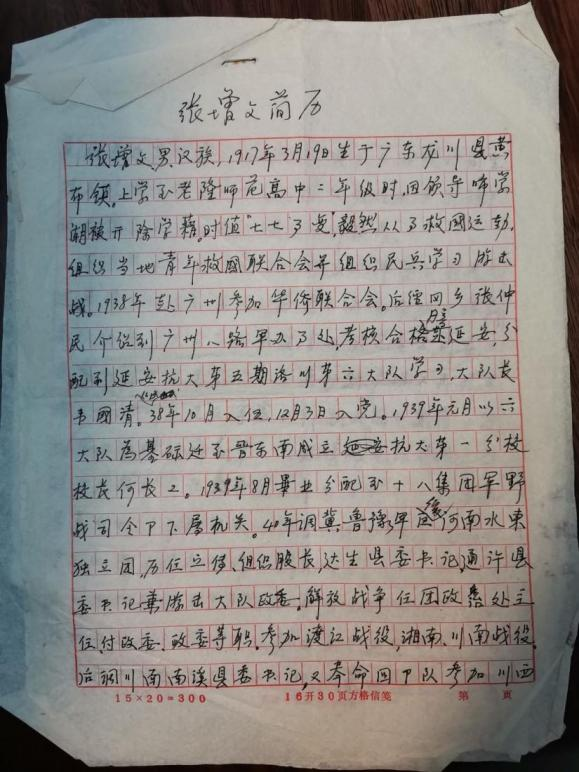 张增文简历
张增文,男,汉族,1917年3月19日生于广东龙川县黄
布镇。上学至老隆师范高中二年级时,因领导啼学
潮被开除学籍。时值“七七”了变,毅然从了救国运动,
组织当地青年救國联合会并组织民兵学习游击
战。1938年赴广州参加华侨联合会。后经同乡张仲
民介绍到广州八路军办了处,考核合格,延安,分
配到延安抗大第五期洛川第六大队学习,大队长
韦國清。38年10月入伍,12月3日入党。1939年元月以六
大队为基础迁至晋东南成立抗大第一分校
校长何长工。1939年8月畢业分配至十八集团军野
战司令下下属机关。40年调冀鲁豫军区河南水東
独立团,历任立傳、组织股长,达生县委书记,通许县
委书记兼游击大队政委。解放战争任团政处主
任、付政委、政委等职。参加渡江战役,湘南、川南战役。
后调川南南溪县委书记,又奉命回下队参加川西
15×20=300
16开30页方格信笺
第 页